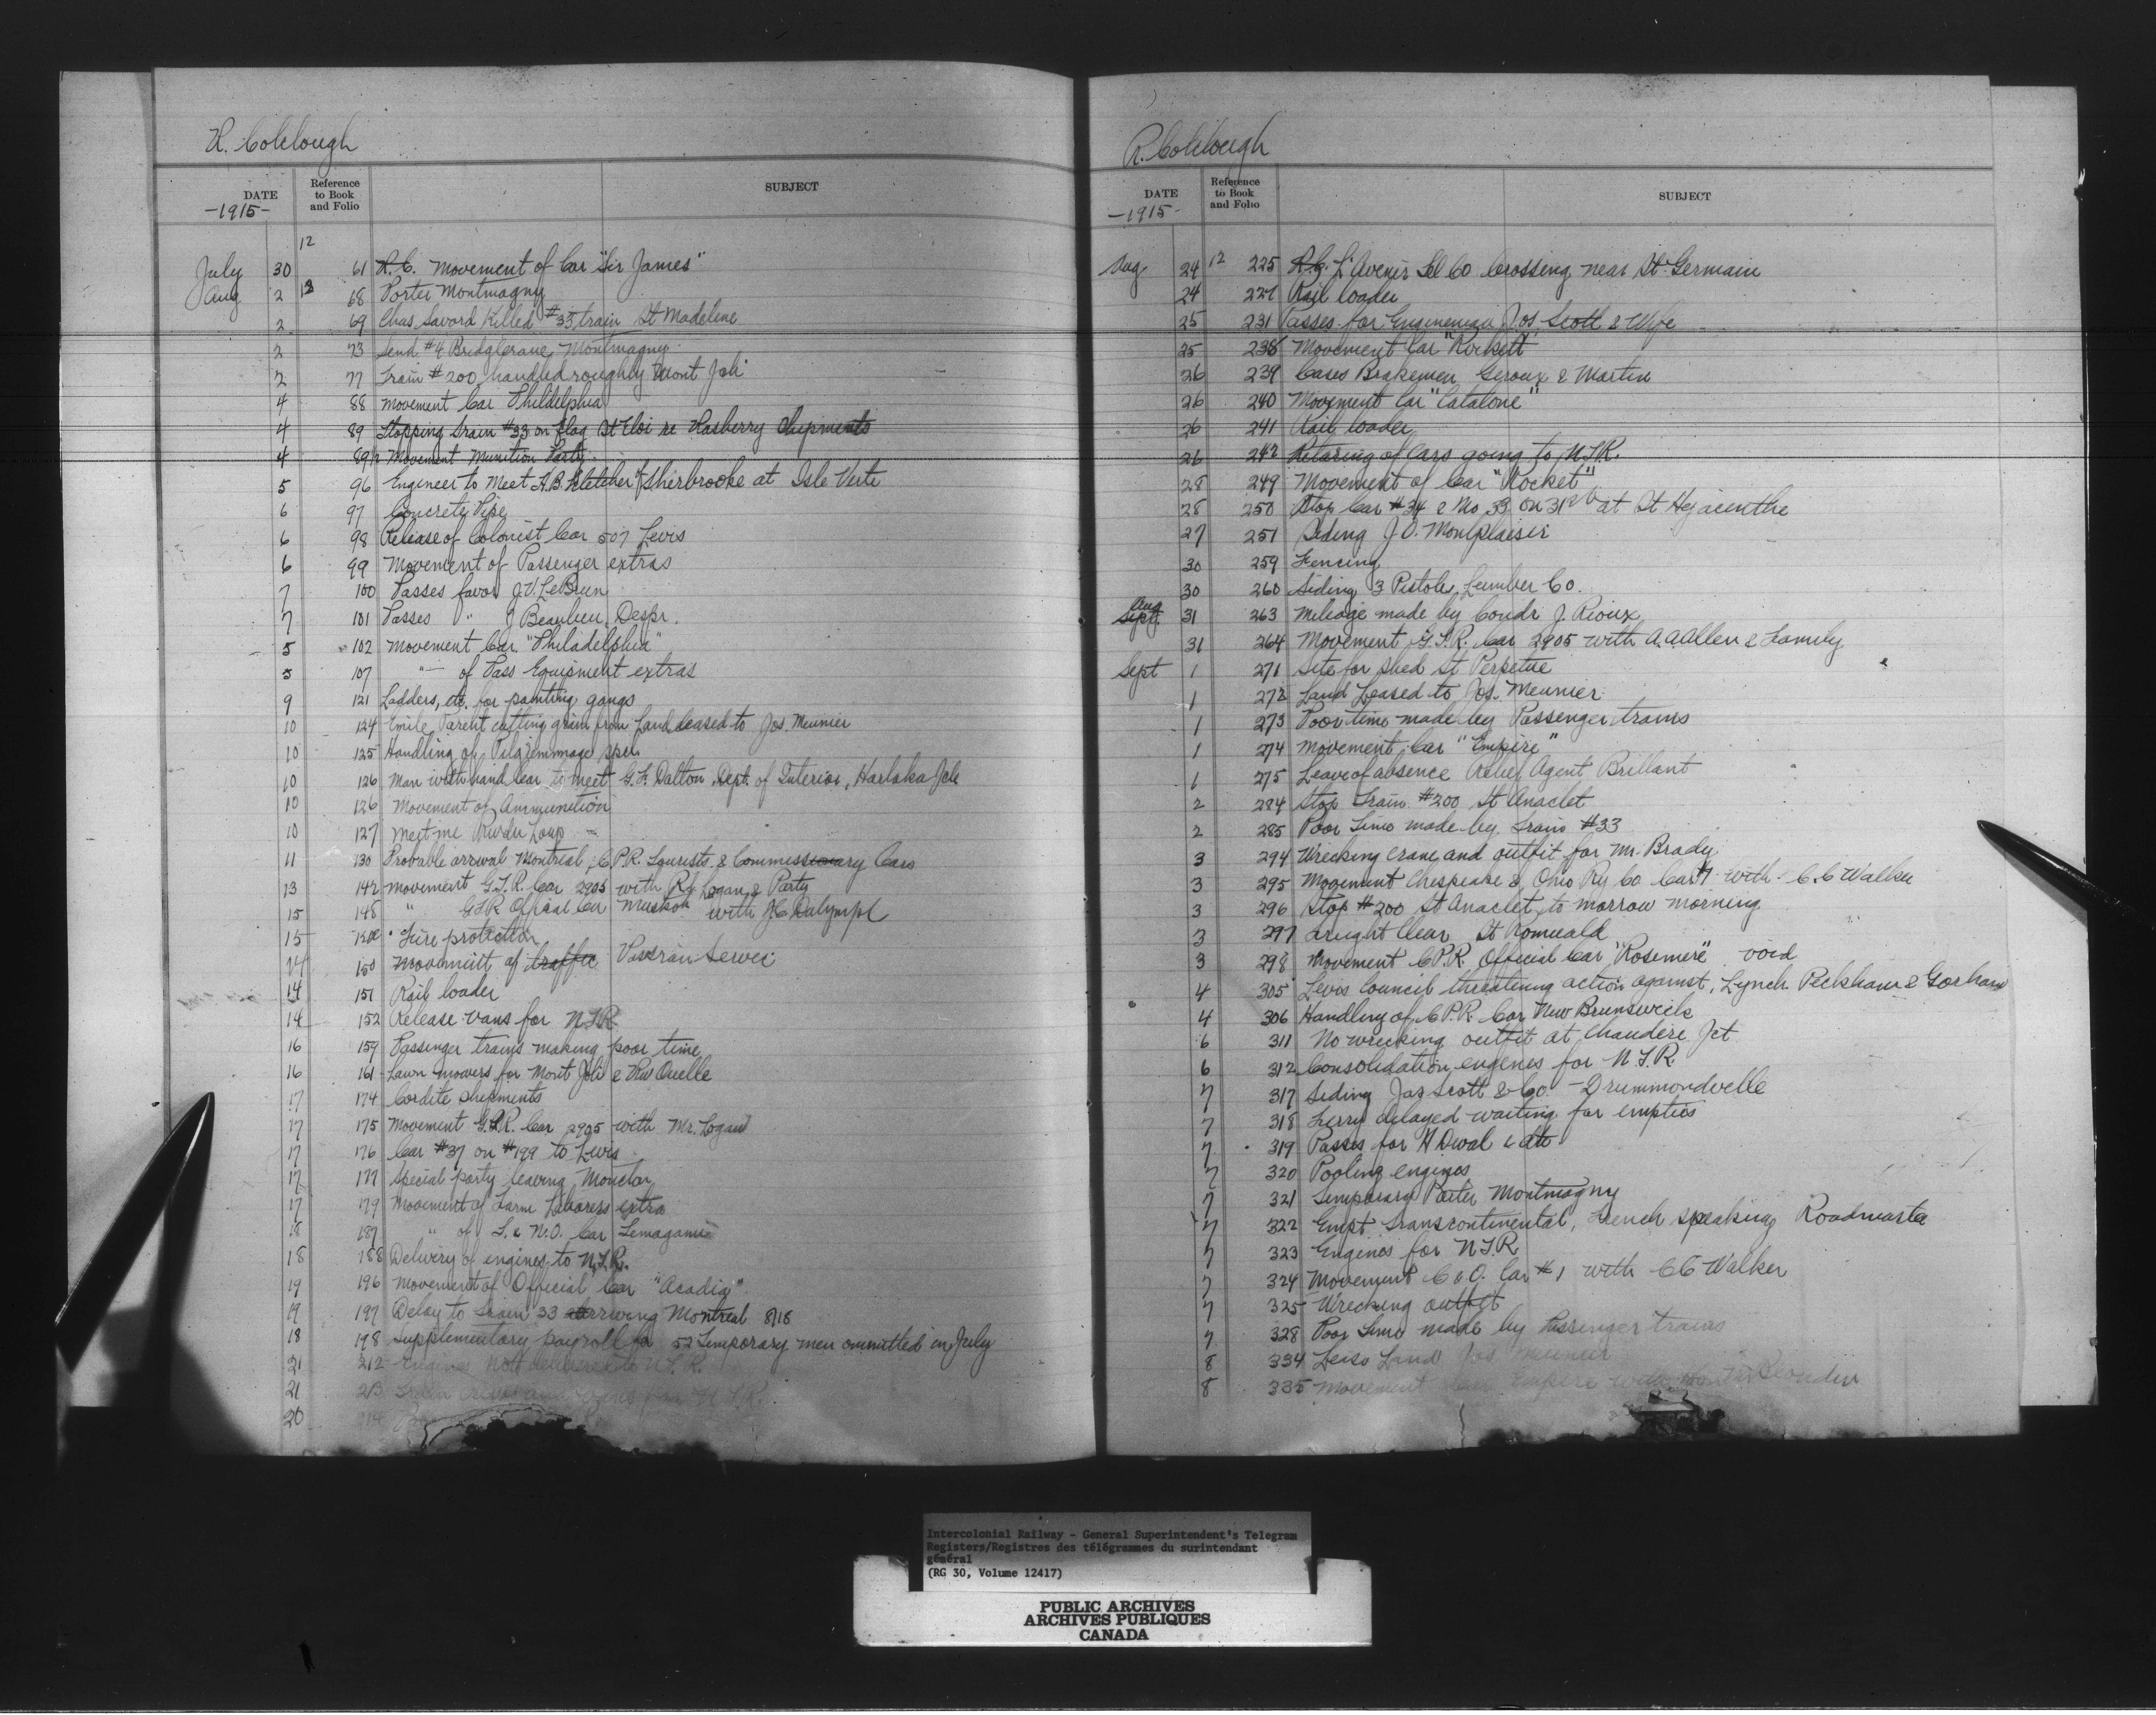 R. Colclough
DATE
-1915-
Reference
to Book
and Folio
SUBJECT
12
July 30 61 R.C. Movement of Car "Sir James"
Aug 2 12 68 Porter Montmagny
2 69 Chas Savard Killed #33 train St Madeline
2 73 Send #4 Bridgecrane Montmagny
2 77 Train #200 handled roughly Mont Joli
4 88 Movement Car Phildelphia
4 89 Stopping Train #33 on flag St Eloi re Rasberry Shipments
4 89½ Movement Munition Party
5 96 Engineer to Meet H.B. Fletcher of Sherbrooke at Isle Verte
6 97 Concrete Pipe
6 98 Release of Colonist Car 507 Levis
6 99 Movement of Passenger extras
7 100 Passes favor J.V. LeBrun
7 101 Passes " J Beaulieu, Despr.
5 102 Movement Car "Philadelphia"
5 107 "— of Pass Equipment extras
9 121 Ladders, etc. for painting gangs
10 124 Emile Parent cutting grain from Land leased to Jos. Meunier
10 125 Handling of Pilgrimmage spec.
10 126 Man with hand Car to meet G.F. Dalton Dept. of Interior, Harlaka Jct
10 126 Movement of Ammunition
10 127 Meet me Riv du Loup
11 130 Probable arrival Montreal, C.P.R. Tourists & Commissary Cars
13 142 Movement G.T.R. Car 2905 with R.L. Logan & Party
15 148 " GTR Official Car Muskok with J.C. Dalympl
15 Fire protection
14 150 Movement of traffic Pas train Service
14 151 Rail loader
14 152 Release vans for N.T.R.
16 159 Passenger trains making poor time
16 161 Lawn mowers for Mont Joli & Riv Ouelle
17 174 Cordite shipments
17 175 Movement G.T.R. Car 2905 with Mr. Logan
17 176 Car #37 on #199 to Levis
17 177 Special party leaving Moncton
17 179 Movement of Farm Laborers extra
18 187 " of T. & N.O. Car Temagami
18 188 Delivery of engines to N.T.R.
19 196 Movement of Official Car "Acadia"
19 197 Delay to Train 33 arriving Montreal 8/18
18 198 Supplementary payroll for 52 Temporary men ommitted in July
21 212 Engines not delivered to N.T.R.
21 213 Train crews and vans for N.T.R.
20 214
R. Colclough
DATE
-1915-
Reference
to Book
and Folio
SUBJECT
Aug 24 12 225 R.C. L'Avenir Tel Co Crossing near St Germain
24 227 Rail loader
25 231 Passes for Engineman Jos. Scott & Wife
25 238 Movement Car "Rockett"
26 239 Cases Brakemen Geroux & Martin
26 240 Movement Car "Catalone"
26 241 Rail loader
26 242 Retaring of Cars going to N.T.R.
28 249 Movement of Car "Rocket"
28 250 Stop Car #34 & No 33 on 31st at St Hyacinthe
27 251 Siding J.O. Montplaisir
30 259 Fencing
30 260 Siding 3 Pistoles Lumber Co.
Aug
Sept 31 263 Mileage made by Condr J. Rioux
31 264 Movement G.T.R. Car 2905 with A.A. Allen & Family
Sept 1 271 Site for shed St Perpetue
1 272 Land Leased to Jos. Meunier
1 273 Poor time made by Passenger trains
1 274 Movement Car "Empire"
1 275 Leave of absence Relief Agent Brillant
2 284 Stop Train #200 St Anaclet
2 285 Poor Time made by Train #33
3 294 Wrecking crane and outfit for Mr. Brady
3 295 Movement Chespeake & Ohio Ry Co Car #1 with C.C Walker
3 296 Stop #200 St Anaclet to morrow morning
3 297 Freight Clear St Romuald
3 298 Movement C.P.R. Official Car "Rosemere" void
4 305 Levis Council threatning action against, Lynch Peckham & Gorham
4 306 Handling of C.P.R. Car New Brunswick
6 311 No wrecking outfit at Chaudere Jct
6 312 Consolidation engines for N.T.R.
7 317 Siding Jas Scott & Co. - Drummondvelle
7 318 Ferry delayed waiting for empties
7 319 Passes for
7 320 Pooling engines
7 321 Temporary Porter Montmagny
7 322 Empt Transcontinental, French speaking Roadmaster
7 323 Engines for N.T.R
7 324 Movement C & O. Car #1 with C C Walker
7 325 Wrecking outfit
7 328 Poor Time made by Passenger trains
8 334 Leiss Land Jos Meunier
8 335 Movement Car Empire with
Intercolonial Railway - General Superintendent's Telegram
Registers/Registres des télégrammes du surintendant
général
(RG 30, Volume 12417)
PUBLIC ARCHIVES
ARCHIVES PUBLIQUES
CANADA